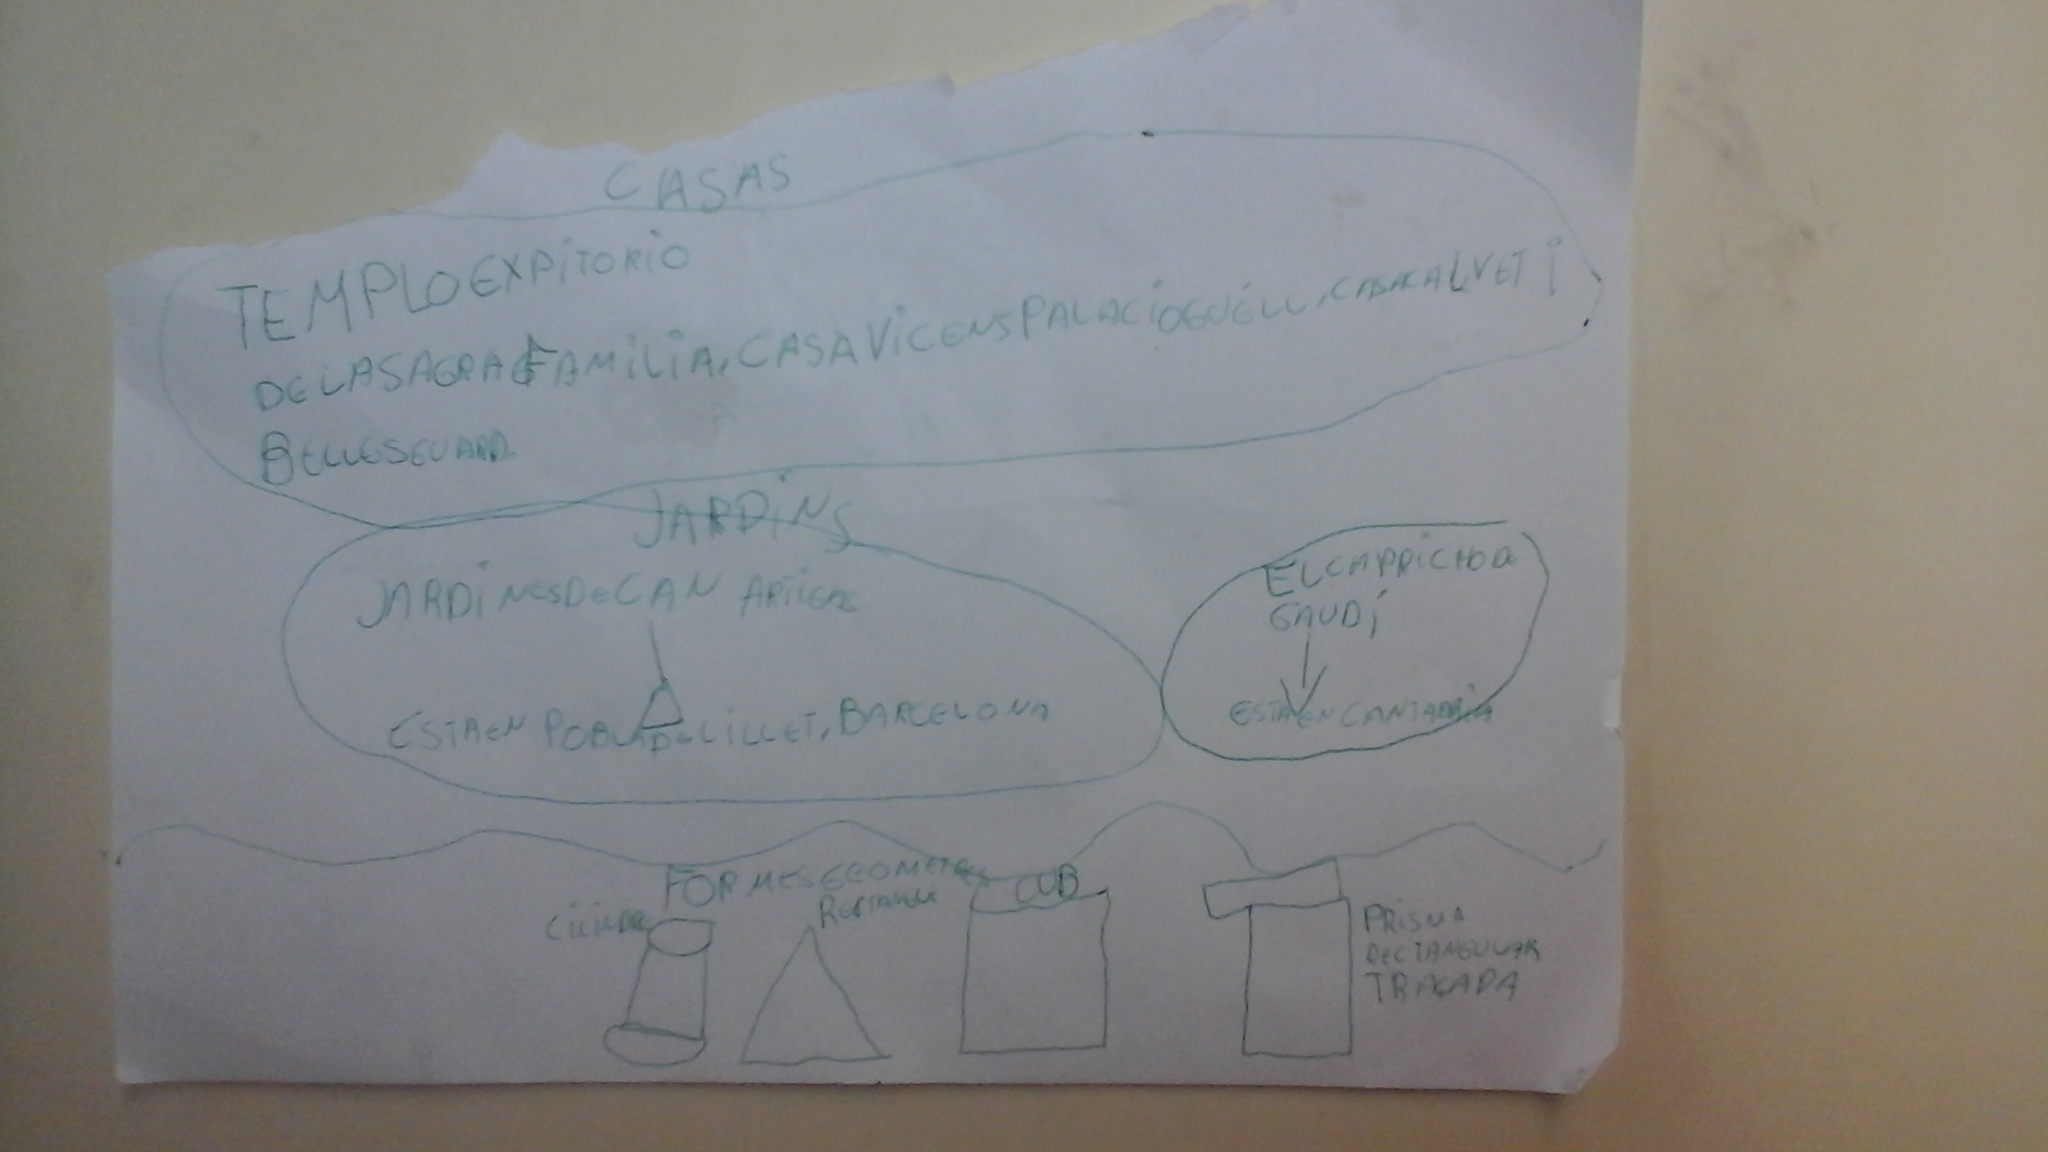 CASAS
TEMPLO EXPiTORiO
DE LA SAGRA FAMiLiA, CASA ViCENS PALACiO GUÉLL, CASA CALVET i
BELLESGUARD.
JARDiNS
JARDiNES DE CAN ARTIGAS
ESTA EN POBLA DE LiLLET, BARCELONA
EL CAPRICHO D
GAUDÍ
ESTA EN CANTABRIA
FORMES GEOMETR
CUB
PRISMA
RECTANGULAR